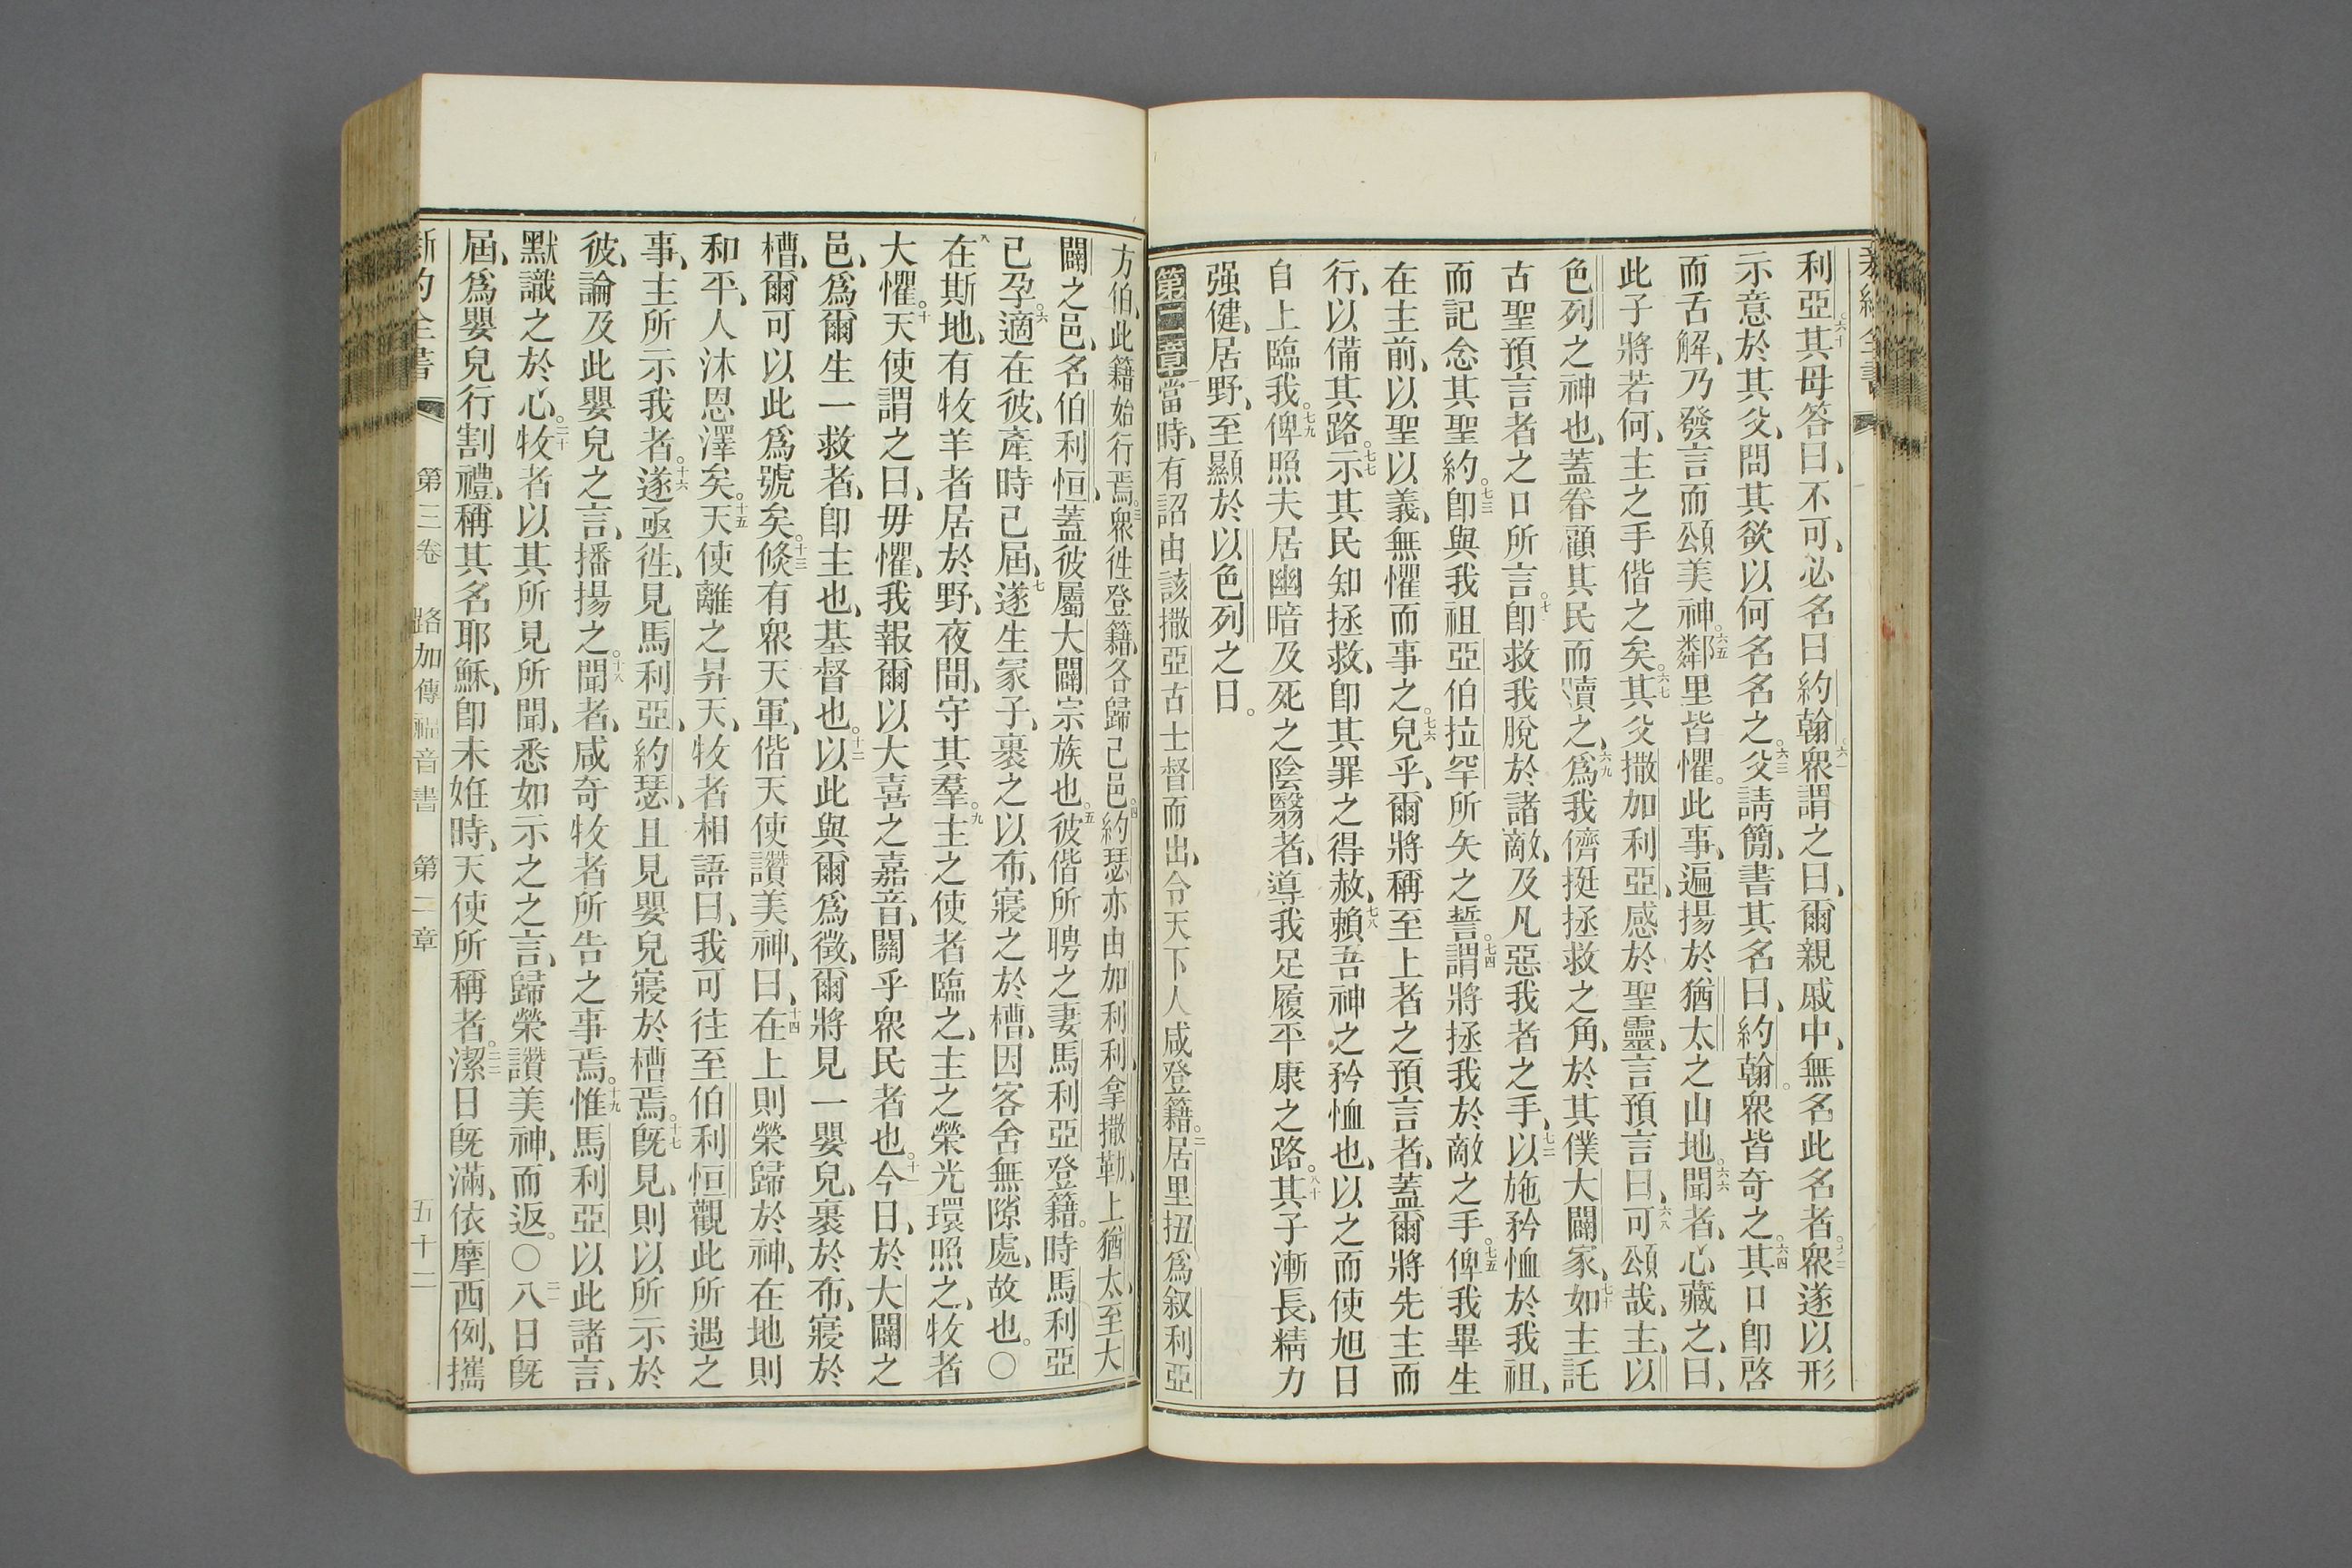 利亞。六十其母答曰、不可、必名曰約翰。六一衆謂之曰、爾親戚中、無名此名者。六二衆遂以形
示意於其父、問其欲以何名名之。六三父請簡、書其名曰、約翰。衆皆奇之。六四其口卽啓
而舌解、乃發言而頌美神。六五鄰里皆懼。此事、遍揚於猶太之山地。六六聞者、心藏之、曰、
此子將若何、主之手偕之矣。六七其父撒加利亞、感於聖靈、言預言曰、六八可頌哉、主、以
色列之神也、蓋眷顧其民而贖之、六九爲我儕挺拯救之角、於其僕大闢家、七十如主託
古聖預言者之口所言。七一卽救我脫於諸敵、及凡惡我者之手、七二以施矜恤於我祖、
而記念其聖約。七三卽與我祖亞伯拉罕所矢之誓。七四謂將拯我於敵之手。七五俾我畢生
在主前、以聖以義、無懼而事之。七六兒乎、爾將稱至上者之預言者、蓋爾將先主而
行、以備其路。七七示其民知拯救、卽其罪之得赦、七八賴吾神之矜恤也、以之而使旭日
自上臨我。七九俾照夫居幽暗及死之陰翳者、導我足履平康之路。八十其子漸長、精力
强健、居野、至顯於以色列之日。
第二章 一當時、有詔由該撒亞古士督而出、令天下人咸登籍。二居里扭爲叙利亞
方伯、此籍始行焉。三衆往登籍、各歸己邑。四約瑟亦由加利利、拿撒勒、上猶太、至大
闢之邑、名伯利恒、蓋彼屬大闢宗族也。五彼偕所聘之妻馬利亞登籍。時馬利亞
已孕。六適在彼、產時已屆、七遂生冢子、裹之以布、寢之於槽、因客舍無隙處、故也。〇
八在斯地、有牧羊者居於野、夜間、守其羣。九主之使者臨之、主之榮光環照之、牧者
大懼。十天使謂之曰、毋懼、我報爾以大喜之嘉音、關乎衆民者也。十一今日、於大闢之
邑、爲爾生一救者、卽主也、基督也。十二以此與爾爲徵、爾將見一嬰兒、裹於布、寢於
槽、爾可以此爲號矣。十三倐有衆天軍、偕天使讚美神、曰、十四在上則榮歸於神、在地則
和平、人沐恩澤矣。十五天使離之昇天、牧者相語曰、我可往至伯利恒觀此所遇之
事、主所示我者。十六遂亟往、見馬利亞、約瑟、且見嬰兒寢於槽焉。十七旣見、則以所示於
彼、論及此嬰兒之言、播揚之。十八聞者、咸奇牧者所告之事焉。十九惟馬利亞以此諸言、
默識之於心。二十牧者以其所見所聞、悉如示之之言、歸榮讚美神、而返。〇二一八日旣
屆、爲嬰兒行割禮、稱其名耶穌、卽未姙時、天使所稱者。二二潔日旣滿、依摩西例、攜
新約全書 第三卷 路加傳福音書 第二章 五十二